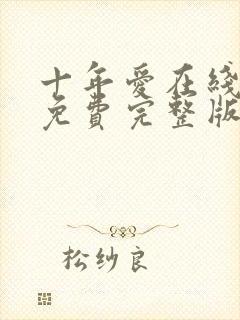 十年愛在綫
免費完整版
松纱良